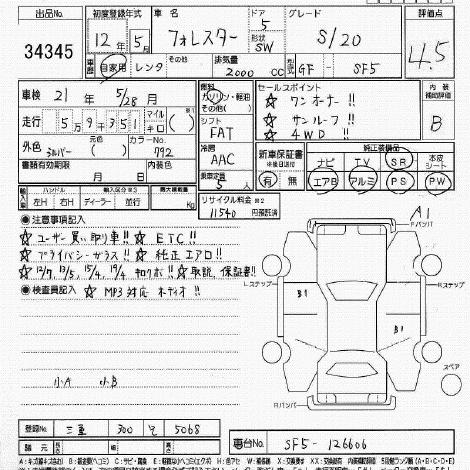 出品No. 34345
初度登録年式 12年 5月
車名 フォレスター
ドア 5
形状 SW
グレード S/20
評価点 4.5
車歴 自家用 レンタ その他
排気量 2000 CC
型式 GF - SF5
車検 21年 5/28月
燃料 ガソリン・軽油 その他( )
セールスポイント
☆ ワンオーナー!!
☆ サンルーフ!!
☆ 4WD !!
内装補助評価 B
走行 5万9千351 マイル キロ ( )
シフト FAT
外色 シルバー ( )
カラーNo. 792
冷房 AAC
新車保証書 有 無
純正装備品
ナビ TV SR 本皮シート
エアB アルミ PS PW
書類有効期限 月 日
内装色
乗車定員 5人
輸入車 ハンドル 左H 右H
輸入区分 ディーラー 並行
最大積載量 Kg
リサイクル料金 ※2
11540 円預託済
●注意事項記入
☆ ユーザー買い取り車!! ☆ ETC!!
☆ プライバシーガラス!! ☆ 純正エアロ!!
☆ 12/7, 13/5, 15/4, 19/4 キロクボ!! ☆ 取説、保証書!!
●検査員記入 ☆ MP3対応オーディオ!!
小A 小B
A1
Fバンパ
Lステップ
Rステップ
B1
B1
スペア
Rバンパ
登録No. 三重 300 そ 5068
車台No. SF5-126606
諸元